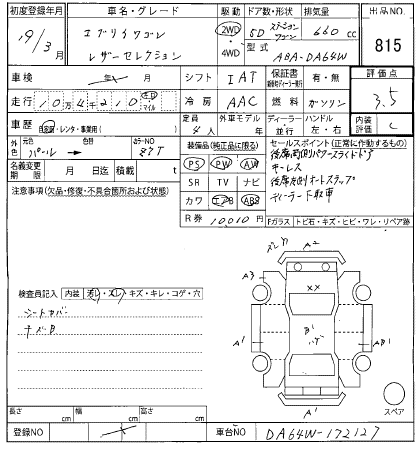 初度登録年月 車名・グレード 駆動 ドア数・形状 排気量 出品NO.
19/3 エブリイワゴン 2WD 5D ステーションワゴン 660 cc 815
レザーセレクション 4WD 型式 ABA-DA64W
車検 年 月 シフト IAT 保証書 有・無 評価点
走行 10万4千210 km マイル 冷房 AAC 燃料 ガソリン 3.5
車歴 自家用・レンタ・事業用( ) 定員 4人 外車モデル 年 ディーラー 並行 ハンドル 左・右 内装評価 C
外色 元色 パール 色替 カラーNO Z7T 装備品(純正品に限る) セールスポイント(正常に作動するもの)
PS PW AW 後席両側パワースライドドア
名義変更期限 月 日迄 積載 t キーレス
SR TV ナビ 後席左側オートステップ
注意事項(欠品・修復・不具合箇所および状態) カワ エアB ABS ディーラー下取車
R券 10010円 Fガラス トビ石・キズ・ヒビ・ワレ・リペア跡
A2
A3
XX
検査員記入 内装 汚れ・スレ・キズ・キレ・コゲ・穴
シートカバー
ナビB
B1
A1
AB1
A1
スペア
長さ cm 幅 cm 高さ cm
登録NO 車台NO DA64W-172127